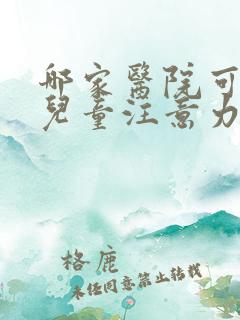 哪家醫院可
兒童注意力
格鹿
未任同意禁止转载